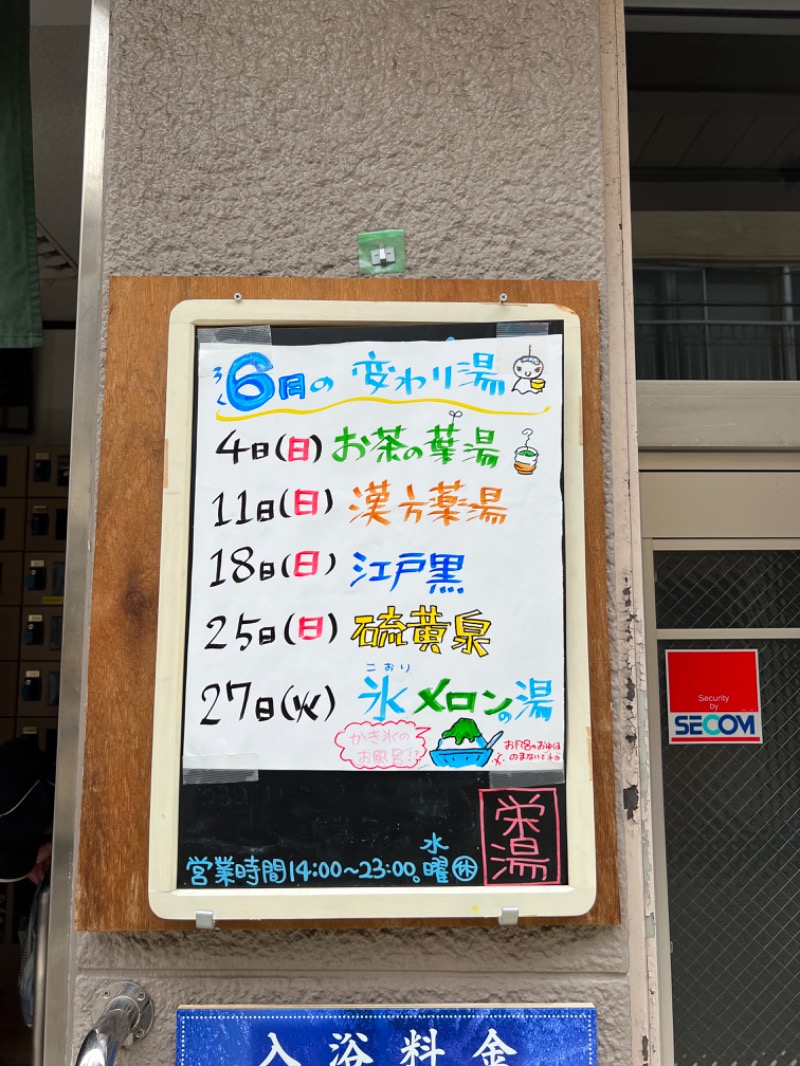 ろく
6月の 変わり湯
4日(日) お茶の葉湯
11日(日) 漢方薬湯
18日(日) 江戸黒
25日(日) 硫黄泉
こおり
27日(火) 氷メロンの湯
かき氷の
お風呂!?
お風呂のお湯は
のまないでネ
栄湯
営業時間14:00～23:00。水曜㊡
Security
by
SECOM
入浴料金